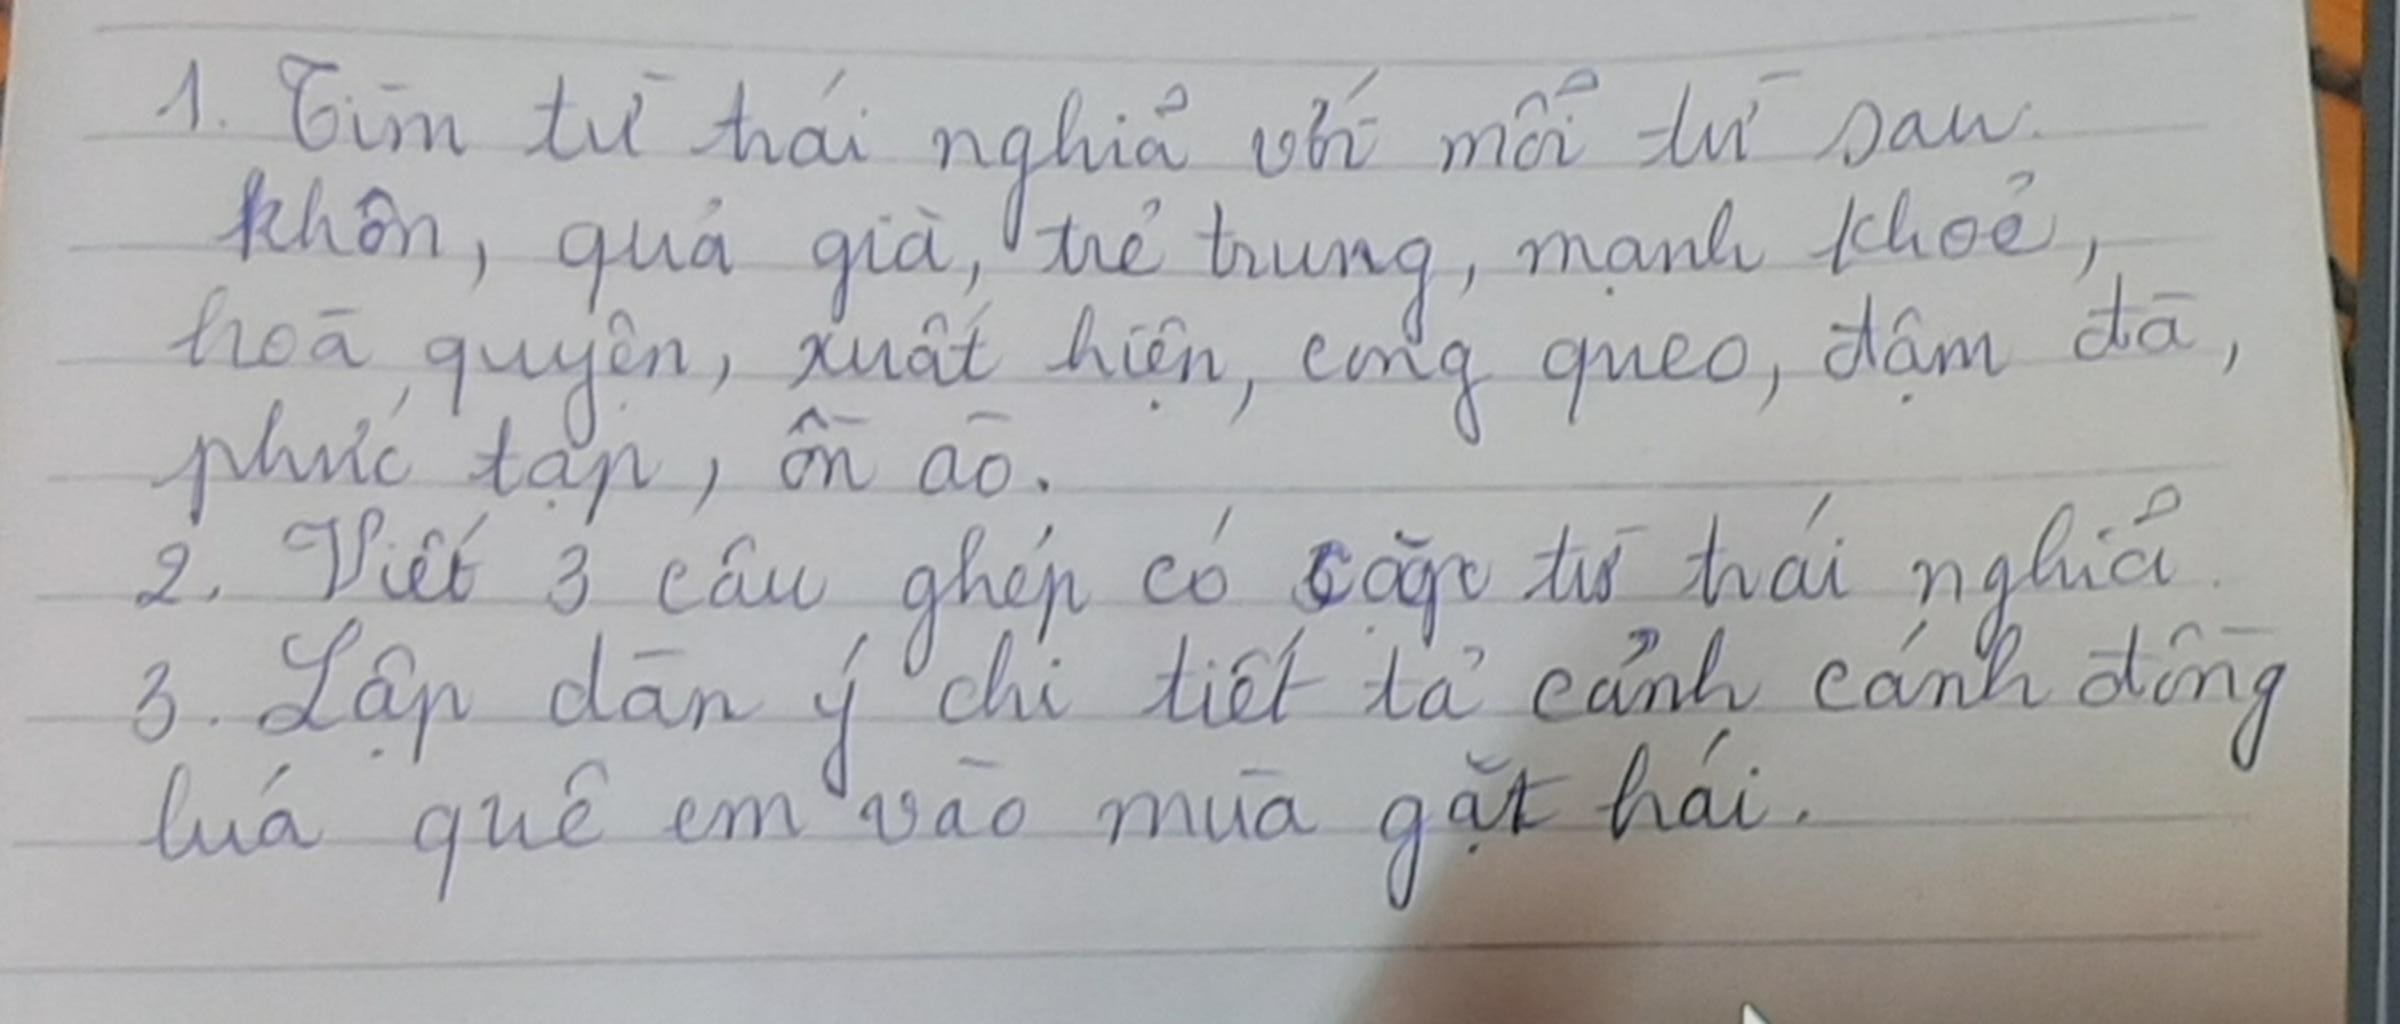 1. Tìm từ trái nghĩa với mỗi từ sau:
khôn, quả già, trẻ trung, mạnh khoẻ,
hoà quyện, xuất hiện, cong queo, đậm đà,
phức tạp, ồn ào.
2. Viết 3 câu ghép có cặp từ trái nghĩa.
3. Lập dàn ý chi tiết tả cảnh cánh đồng
luá quê em vào mùa gặt hái.